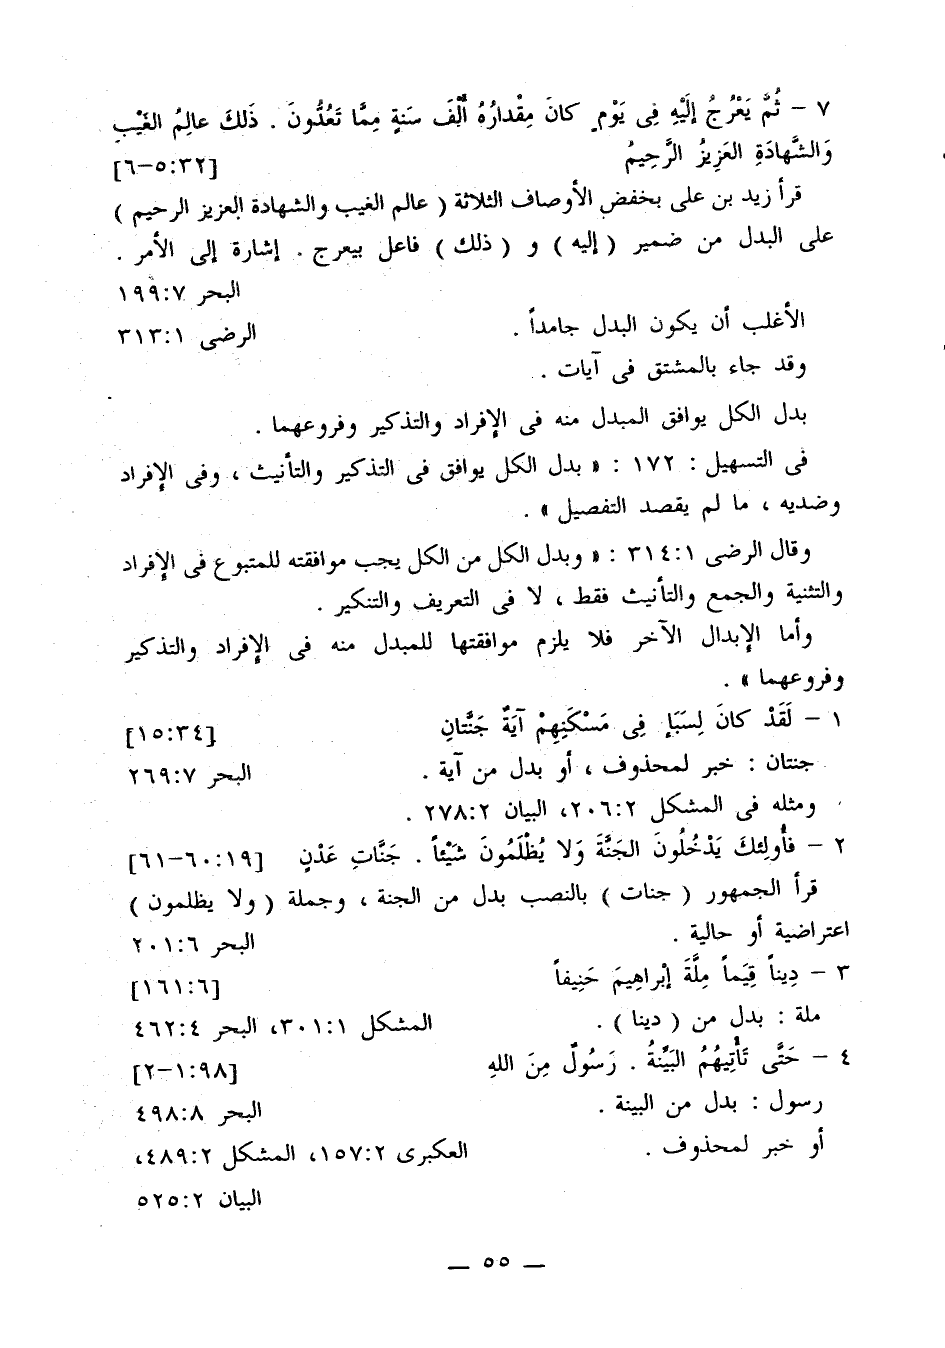 ٧ – ثُمَّ يَعْرُجُ إلَيْهِ فِى يَوْمٍ كانَ مِقْدارُهُ أَلْفَ سَنَةٍ مِمَّا تَعُدُّونَ . ذَلكَ عالِمُ الغَيْبِ
وَالشَّهادَةِ العَزِيزُ الرَّحِيمُ [٥:٣٢–٦]
قرأ زيد بن على بخفض الأوصاف الثلاثة ( عالم الغيب والشهادة العزيز الرحيم )
على البدل من ضمير ( إليه ) و ( ذلك ) فاعل بيعرج . إشارة إلى الأمر .
البحر ١٩٩:٧
الأغلب أن يكون البدل جامداً . الرضى ٣١٣:١
وقد جاء بالمشتق فى آيات .
بدل الكل يوافق المبدل منه فى الإفراد والتذكير وفروعهما .
فى التسهيل : ١٧٢ : « بدل الكل يوافق فى التذكير والتأنيث ، وفى الإفراد
وضديه ، ما لم يقصد التفصيل » .
وقال الرضى ٣١٤:١ : « وبدل الكل من الكل يجب موافقته للمتبوع فى الإفراد
والتثنية والجمع والتأنيث فقط ، لا فى التعريف والتنكير .
وأما الإبدال الآخر فلا يلزم موافقتها للمبدل منه فى الإفراد والتذكير
وفروعهما » .
١ – لَقَدْ كانَ لِسَبَإ فِى مَسْكَنِهِمْ آيَةٌ جَنَّتانِ [١٥:٣٤]
جنتان : خبر لمحذوف ، أو بدل من آية . البحر ٢٦٩:٧
ومثله فى المشكل ٢٠٦:٢، البيان ٢٧٨:٢ .
٢ – فأُولئِكَ يَدْخُلُونَ الجَنَّةَ وَلا يُظْلَمُونَ شَيْئاً . جَنَّاتِ عَدْنٍ [٦٠:١٩–٦١]
قرأ الجمهور ( جنات ) بالنصب بدل من الجنة ، وجملة ( ولا يظلمون )
اعتراضية أو حالية . البحر ٢٠١:٦
٣ – دِيناً قِيَماً مِلَّةَ إبْراهِيمَ حَنِيفاً [١٦١:٦]
ملة : بدل من ( دينا ) . المشكل ٣٠١:١، البحر ٤٦٢:٤
٤ – حَتَّى تَأْتِيَهُمُ البَيِّنةُ . رَسُولٌ مِنَ اللهِ [١:٩٨–٢]
رسول : بدل من البينة . البحر ٤٩٨:٨
أو خبر لمحذوف . العكبرى ١٥٧:٢، المشكل ٤٨٩:٢،
البيان ٥٢٥:٢
— ٥٥ —